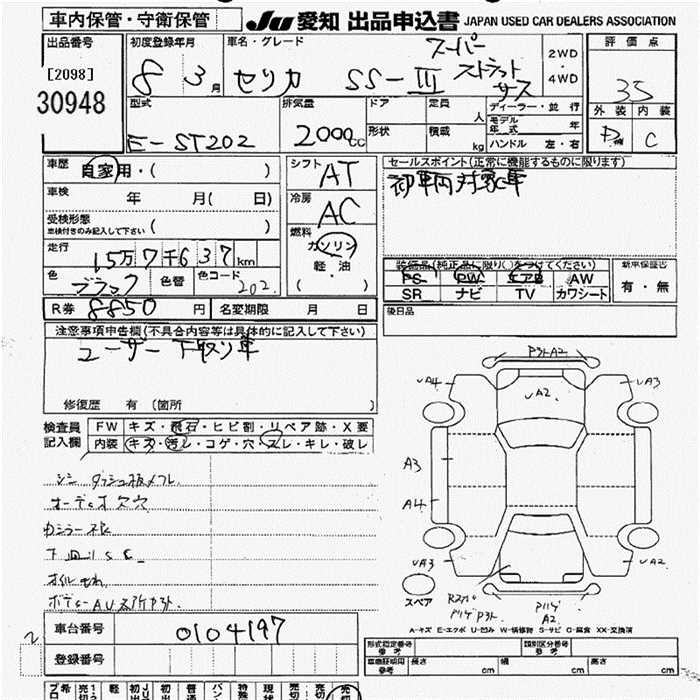 車内保管・守衛保管 JU 愛知 出品申込書 JAPAN USED CAR DEALERS ASSOCIATION
出品番号 初度登録年月 車名・グレード 2WD ・ 4WD 評価点
[2098] 8 年 3 月 セリカ SS-III スーパーストラットサス 35
30948
型式 排気量 ドア 定員 人 ディーラー・並行 外装 内装
E-ST202 2000cc 形状 積載 kg モデル年式 年 D C
ハンドル 左・右
車歴 自家用・( ) シフト AT セールスポイント(正常に機能するものに限ります)
車検 年 月( 日) 冷房 AC 初車両対象車
受検形態 車検付きのみ記入して下さい ( )
燃料 ガソリン 軽・油 ( )
走行 15万7千637km
色 ブラック 色替 色コード 202
装備品(純正品に限り○をつけてください) 新車保証書
PS PW エアB AW 有・無
SR ナビ TV カワシート
R券 8850 円 名変期限 月 日 後日品
注意事項申告欄(不具合内容等は具体的に記入して下さい)
ユーザー下取り車
修復歴 有 (箇所 )
検査員記入欄 FW キズ・飛石・ヒビ割・リペア跡・X要
内装 キズ・汚レ・コゲ・穴・スレ・キレ・破レ
オーディオ欠穴
ボディーAU
P3tA2
UA4 UA2 UA3
A3
A4
UA3 UA2
A2
スペア
A-キズ E-エクボ U-凹み W-補修跡 S-サビ C-腐食 XX-交換済
車台番号 0104197
登録番号
形式指定番号 参考 類別区分番号 参考
車庫証明用 参考 長さ cm 幅 cm 高さ cm